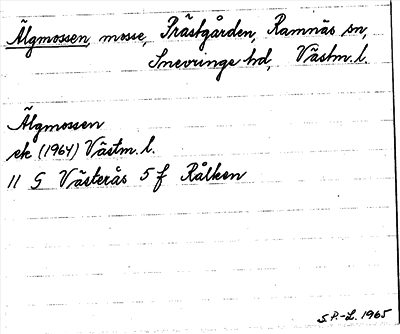 Älgmossen, mosse, Prästgården, Ramnäs sn,
Snevringe hd, Västm. l.
Älgmossen
ek (1964) Västm. l.
11 G Västerås 5 f Rålken
S.P.-L. 1965